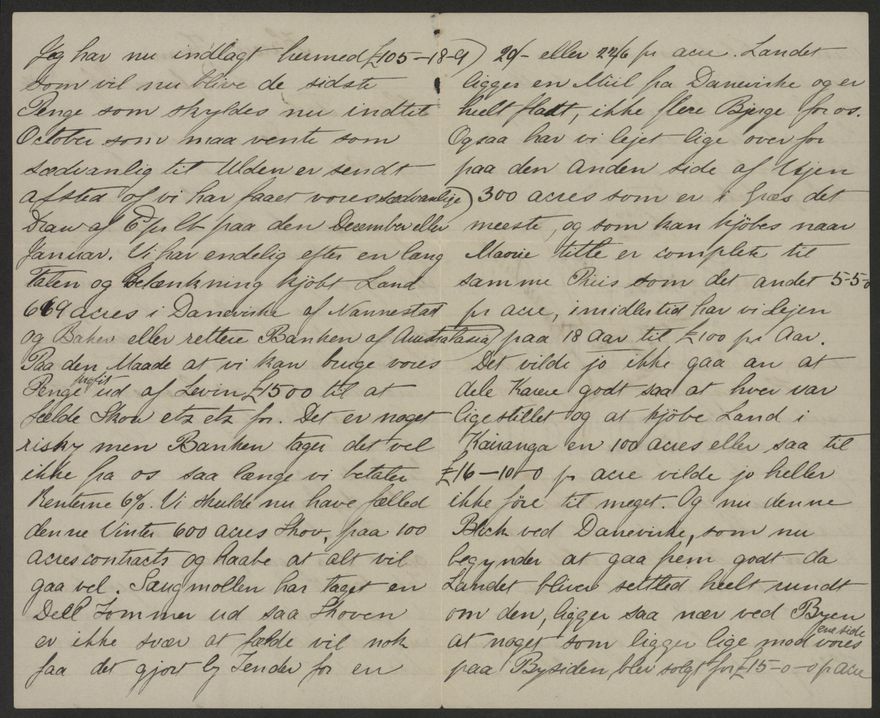 Jeg har nu indlagt hermed £105-18-9)
som vil nu blive de sidste
Penge som skyldes nu indtil
October som maa vente som
sædvanlig til Ulden er sendt
afsted og vi har faaet vores sædvanlige)
Draw af 6d pr lb paa den December eller
Januar. Vi har endelig efter en lang
Talen og Betænkning kjöbt Land
669 acres i Danevirke af Nannestad
og Baker eller rettere Banken af Australasia)
Paa den Maade at vi kan bruge vores
Penge profit ud af Levin £1500 til at
fælde Skov etz etz for. Det er noget
risky men Banken tager det vel
ikke fra os saa længe vi betaler
Renterne 6%. Vi skulde nu have fælled
denne Vinter 600 acres Skov, paa 100
acres contracts og haabe at alt vil
gaa vel. Saugmollen har taget en
Dell Tømmer ud saa Skoven
er ikke svær at fælde vil nok
faa det gjort by Tender for en
20/- eller 22/6 pr acre. Landet
ligger en Miil fra Danevirke og er
heelt fladt, ikke flere Bjerge for os.
Ogsaa har vi lejet lige over for
paa den anden side af Vejen
300 acres som er i Græs det
meeste, og som kan kjöbes naar
Maorie title er complete til
samme Priis som det andet 5-5-0
pr acre, imidlertid har vi Lejen
paa 18 Aar til £100 pr Aar.
Det vilde jo ikke gaa an at
dele Karere godt saa at hver var
lige stillet og at kjöbe Land i
Kairanga en 100 acres eller saa til
£16-10-0 pr acre vilde jo heller
ikke före til meget. Og nu denne
Block ved Danevirke, som nu
begynder at gaa frem godt da
Landet bliver settled heelt rundt
om den, ligger saa nær ved Byen
at noget som ligger lige mod vores ene side
paa Bysiden blev solgt for £15-0-0 pr acre